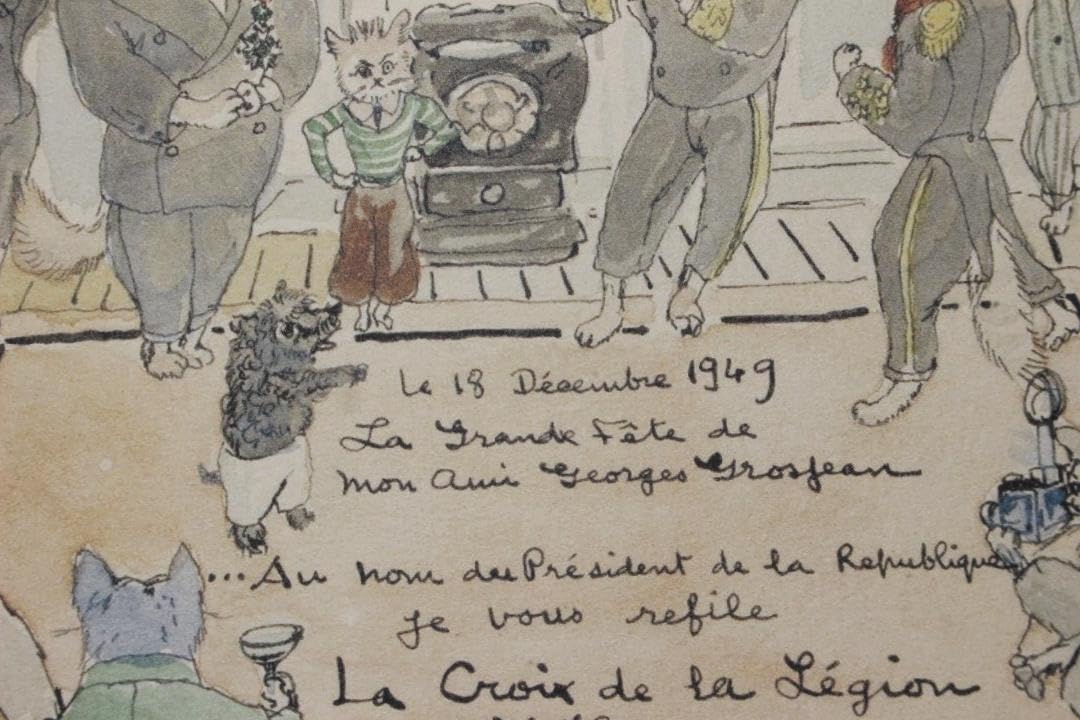 le 18 Décembre 1949
La Grande Fête de
mon Ami Georges Grosjean
...Au nom du Président de la Republique
je vous refile
La Croix de la Légion